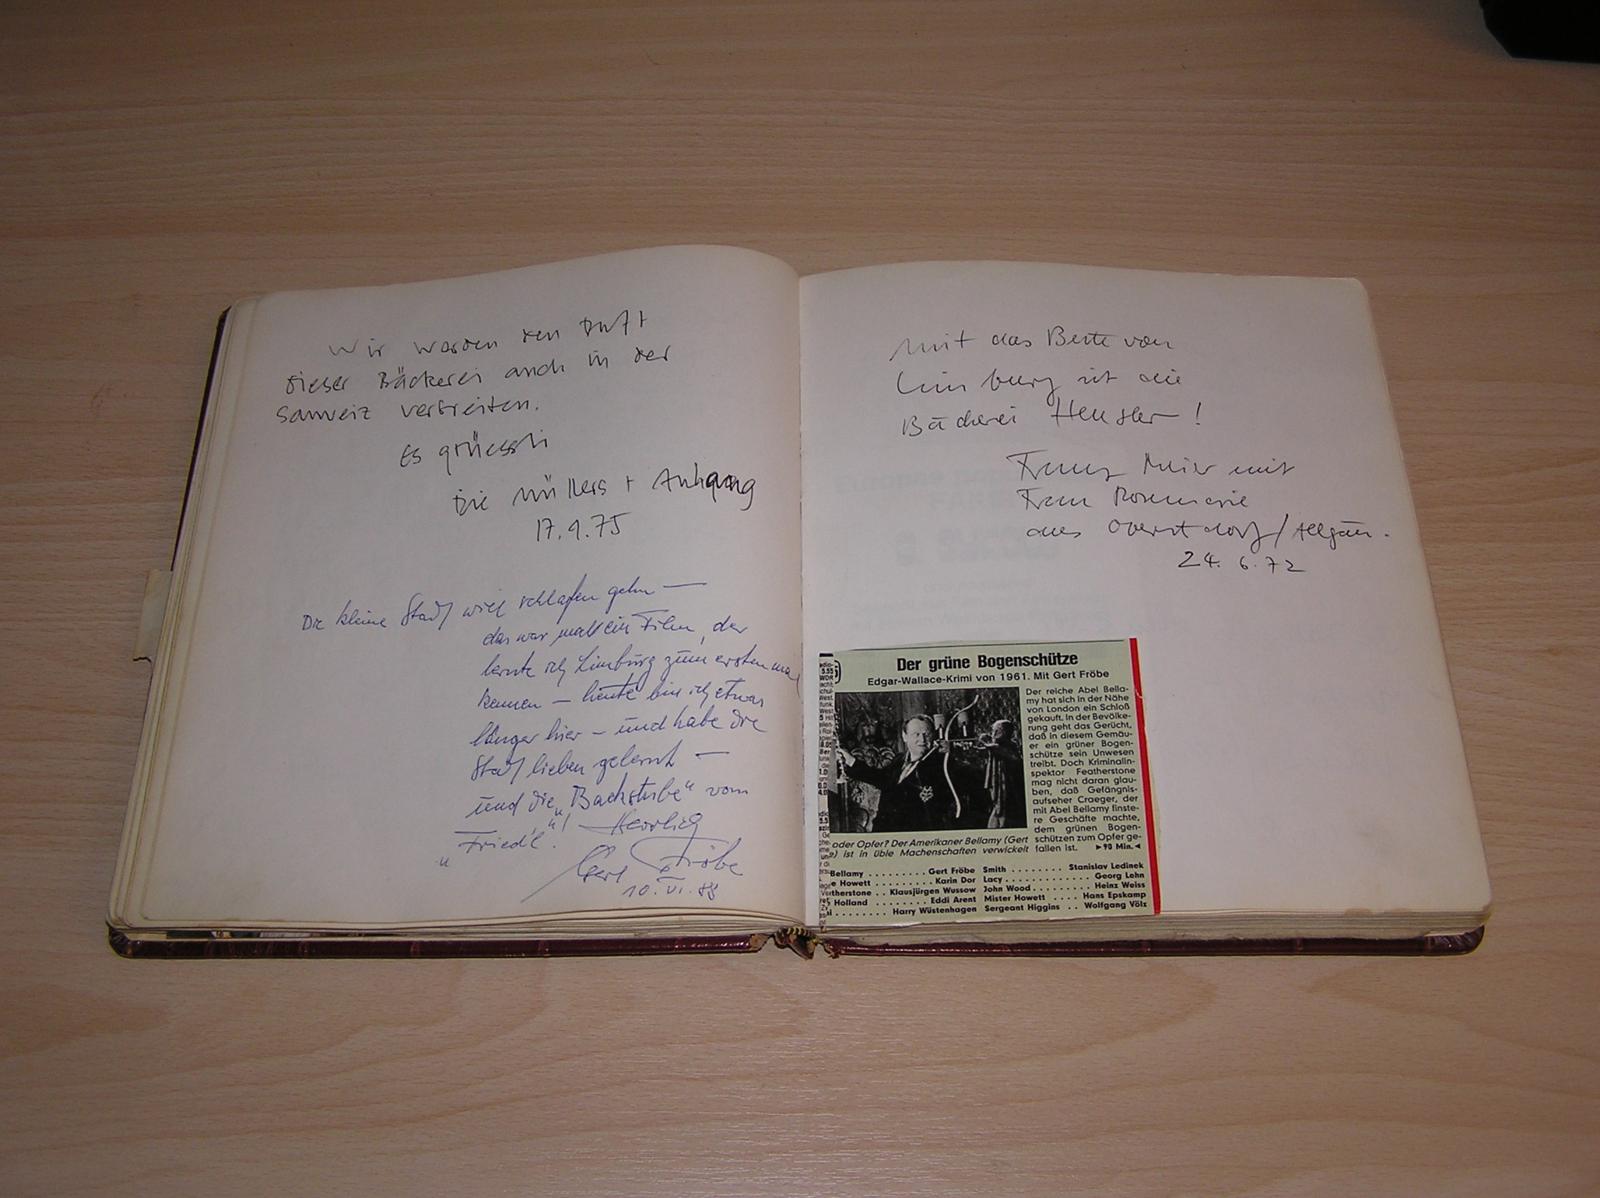 Wir werden den Duft
dieser Bäckerei auch in der
Schweiz verbreiten.
Es grüessli
Die Müllers + Anhang
17.9.75
Die kleine Stadt will schlafen gehn —
das war mal ein Film, der
lernte ich Limburg zum ersten mal
kennen — heute bin ich etwas
länger hier — und habe die
Stadt lieben gelernt —
und die "Backstube" vom
"Friedl"! Herrlich
Gert Fröbe
10. VI. 88
Mit das Beste von
Limburg ist die
Bäckerei Hensler!
Franz Meier mit
Frau Rosemarie
aus Oberstdorf/Allgäu.
24. 6. 72
Der grüne Bogenschütze
Edgar-Wallace-Krimi von 1961. Mit Gert Fröbe
Der reiche Abel Bella-
my hat sich in der Nähe
von London ein Schloß
gekauft. In der Bevölke-
rung geht das Gerücht,
daß in diesem Gemäu-
er ein grüner Bogen-
schütze sein Unwesen
treibt. Doch Kriminalin-
spektor Featherstone
mag nicht daran glau-
ben, daß Gefängnis-
aufseher Craeger, der
mit Abel Bellamy finste-
re Geschäfte machte,
dem grünen Bogen-
schützen zum Opfer ge-
fallen ist. ►90 Min.◄
oder Opfer? Der Amerikaner Bellamy (Gert
) ist in üble Machenschaften verwickelt
Bellamy . . . . . . . . . Gert Fröbe Smith . . . . . . . . Stanislav Ledinek
e Howett . . . . . . . . . Karin Dor Lacy . . . . . . . . . . . . Georg Lehn
therstone . . Klausjürgen Wussow John Wood . . . . . . . . . Heinz Weiss
Holland . . . . . . . . . Eddi Arent Mister Howett . . . . Hans Epskamp
. . . . . . Harry Wüstenhagen Sergeant Higgins . . Wolfgang Völz